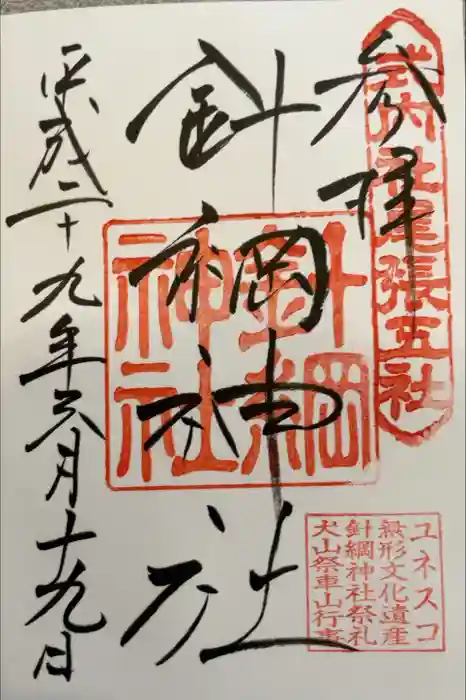 参拝
式内社尾張五社
針綱神社
針綱
神社
平成二十九年六月十九日
ユネスコ
無形文化遺産
針綱神社祭礼
犬山祭車山行事